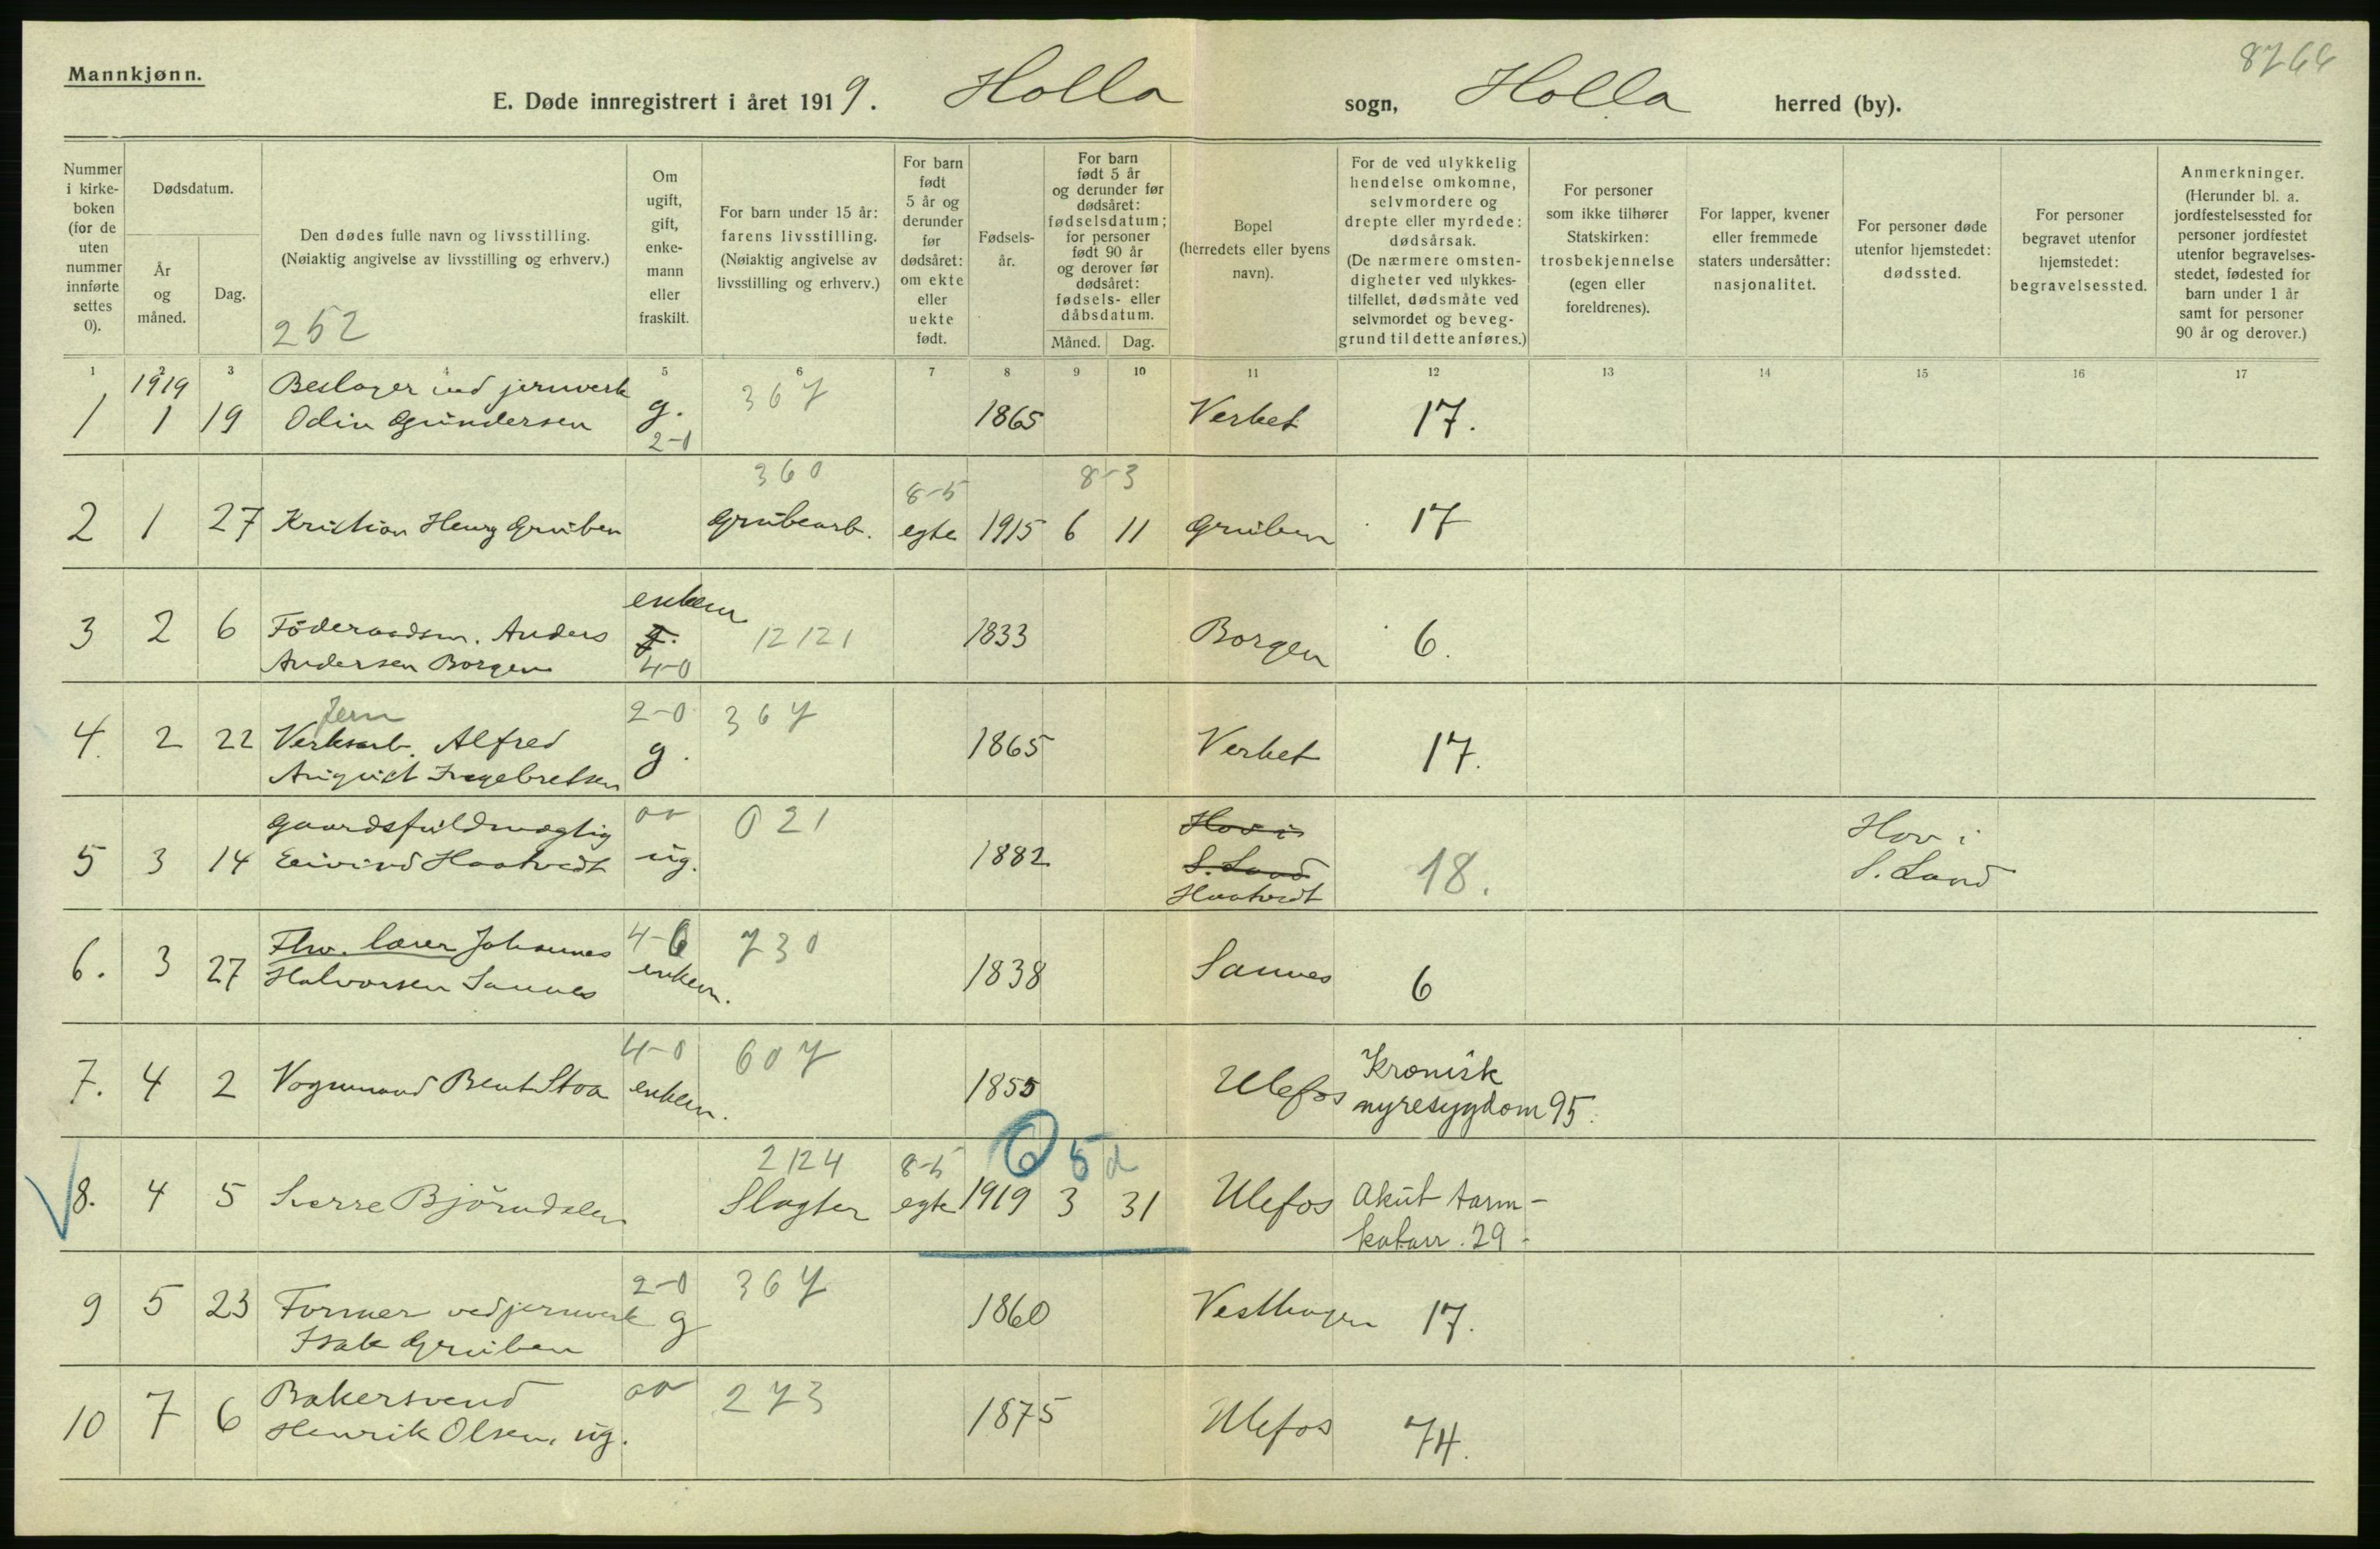 8766
Mannkjønn.
E. Døde innregistrert i året 1919. Holla sogn, Holla herred (by).
Nummer i kirke-boken (for de uten nummer innførte settes 0).
Dødsdatum.
År og måned.
Dag.
Den dødes fulle navn og livsstilling.
(Nøiaktig angivelse av livsstilling og erhverv.)
252
Om ugift, gift, enke-mann eller fraskilt.
For barn under 15 år: farens livsstilling. (Nøiaktig angivelse av livsstilling og erhverv.)
For barn født 5 år og derunder før dødsåret: om ekte eller uekte født.
Fødsels-år.
For barn født 5 år og derunder før dødsåret: fødselsdatum; for personer født 90 år og derover før dødsåret: fødsels- eller dåbsdatum.
Måned. Dag.
Bopel (herredets eller byens navn).
For de ved ulykkelig hendelse omkomne, selvmordere og drepte eller myrdede: dødsårsak. (De nærmere omsten-digheter ved ulykkes-tilfellet, dødsmåte ved selvmordet og beveg-grund til dette anføres.)
For personer som ikke tilhører Statskirken: trosbekjennelse (egen eller foreldrenes).
For lapper, kvener eller fremmede staters undersåtter: nasjonalitet.
For personer døde utenfor hjemstedet: dødssted.
For personer begravet utenfor hjemstedet: begravelsessted.
Anmerkninger. (Herunder bl. a. jordfestelsessted for personer jordfestet utenfor begravelses-stedet, fødested for barn under 1 år samt for personer 90 år og derover.)
1 2 3 4 5 6 7 8 9 10 11 12 13 14 15 16 17
1919 Beslager ved jernverk 367
1 1 19 Odin Gundersen g. 1865 Verket 17.
2-0
360 8-5 8-3
2 1 27 Kristian Henry Gruben Grubearb. egte 1915 6 11 Gruben 17
enkem
3 2 6 Föderaadsm. Anders g. 12121 1833 Borgen 6.
Andersen Borgen 4-0
Jern 2-0 367
4. 2 22 Verksarb. Alfred g. 1865 Verket 17.
August Ingebretsen
Gaardsfuldmægtig 00 021 Hov i Hov i
5 3 14 Eivind Haatvedt ug. 1882 S. Land 18. S. Land
Haatvedt
Fhv. lærer Johannes 4-0 730
6. 3 27 Halvorsen Sannes enkem. 1838 Sannes 6
4-0 607 Kronisk
7. 4 2 Vognmand Bent Stoa enkem. 1855 Ulefos nyresygdom 95.
2124 8-5 0 5 d
8. 4 5 Sverre Björndalen Slagter egte 1919 3 31 Ulefos Akut tarm-
katarr. 29.
2-0 367
9 5 23 Former ved jernverk g 1860 Vesthagen 17.
Isak Gruben
Bakersvend 00 273
10 7 6 Henrik Olsen, ug. 1875 Ulefos 74.